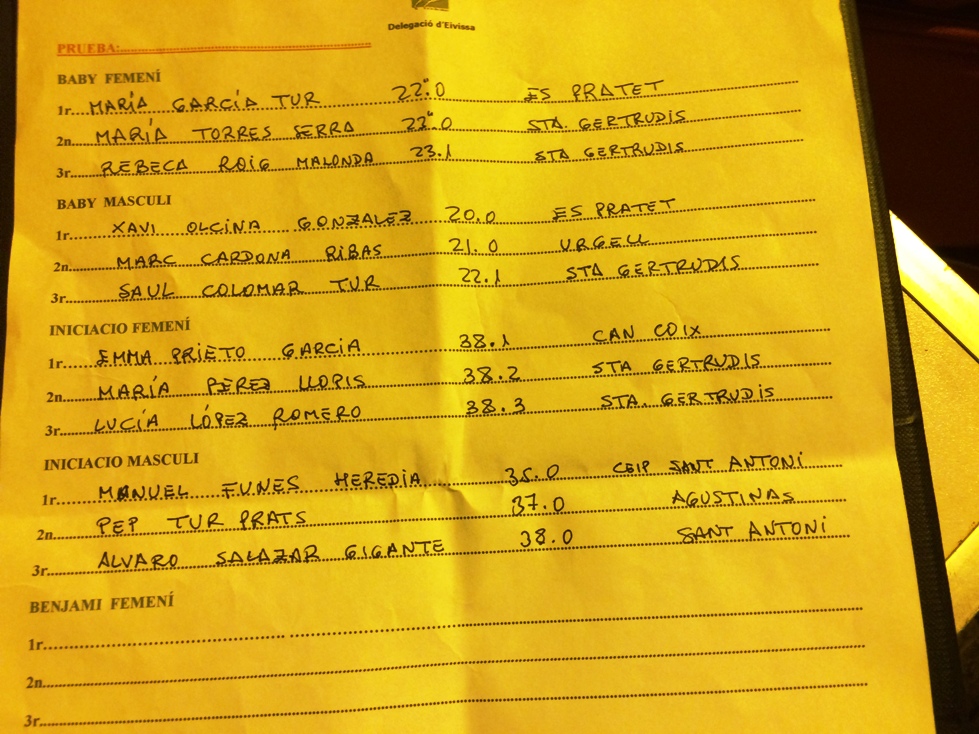 Delegació d'Eivissa
PRUEBA:
BABY FEMENÍ
1r. MARÍA GARCÍA TUR 22"0 ES PRATET
2n MARÍA TORRES SERRA 22"0 STA. GERTRUDIS
3r REBECA ROIG MALONDA 23.1 STA GERTRUDIS
BABY MASCULI
1r XAVI OLCINA GONZALEZ 20.0 ES PRATET
2n MARC CARDONA RIBAS 21.0 URGELL
3r SAUL COLOMAR TUR 22.1 STA GERTRUDIS
INICIACIO FEMENÍ
1r EMMA PRIETO GARCIA 38.1 CAN COIX
2n MARÍA PÉREZ LLOPIS 38.2 STA GERTRUDIS
3r LUCÍA LÓPEZ ROMERO 38.3 STA. GERTRUDIS
INICIACIO MASCULI
1r MANUEL FUNES HEREDIA 35.0 CEIP SANT ANTONI
2n PEP TUR PRATS 37.0 AGUSTINAS
3r ALVARO SALAZAR GIGANTE 38.0 SANT ANTONI
BENJAMI FEMENÍ
1r
2n
3r